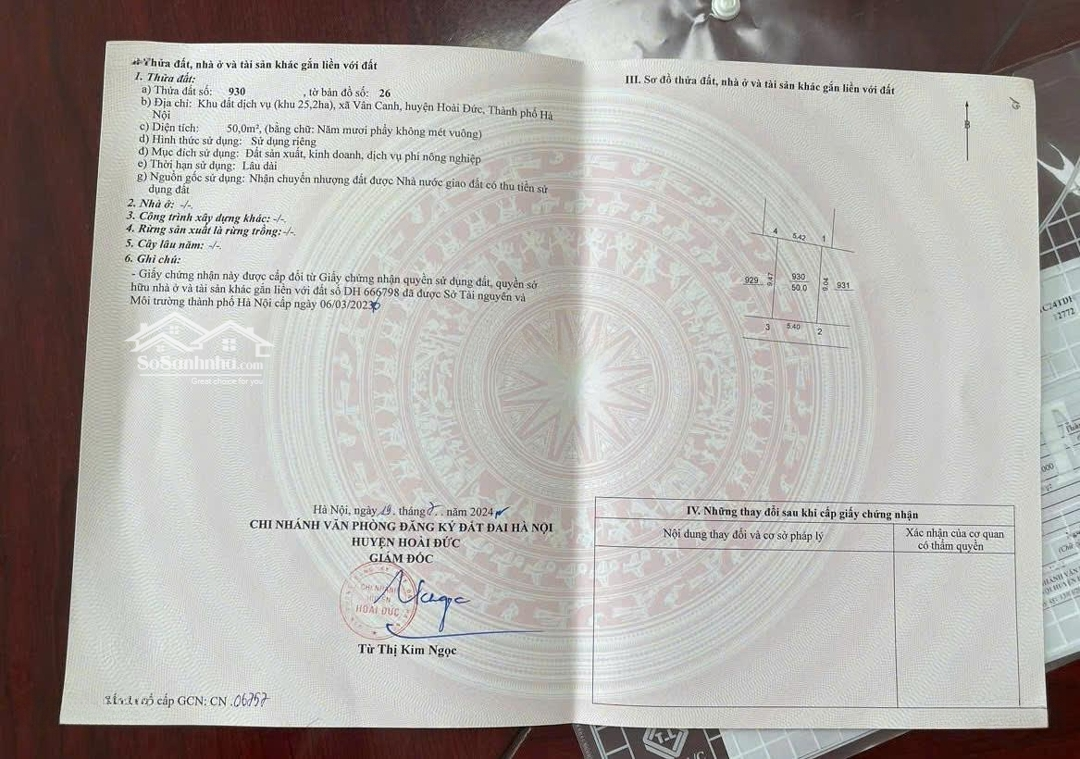 Thửa đất, nhà ở và tài sản khác gắn liền với đất
1. Thửa đất:
a) Thửa đất số: 930 , tờ bản đồ số: 26
b) Địa chỉ: Khu đất dịch vụ (khu 25,2ha), xã Vân Canh, huyện Hoài Đức, Thành phố Hà
Nội
c) Diện tích: 50,0m², (bằng chữ: Năm mươi phẩy không mét vuông)
d) Hình thức sử dụng: Sử dụng riêng
đ) Mục đích sử dụng: Đất sản xuất, kinh doanh, dịch vụ phi nông nghiệp
e) Thời hạn sử dụng: Lâu dài
g) Nguồn gốc sử dụng: Nhận chuyển nhượng đất được Nhà nước giao đất có thu tiền sử
dụng đất
2. Nhà ở: -/-.
3. Công trình xây dựng khác: -/-.
4. Rừng sản xuất là rừng trồng: -/-.
5. Cây lâu năm: -/-.
6. Ghi chú:
- Giấy chứng nhận này được cấp đổi từ Giấy chứng nhận quyền sử dụng đất, quyền sở
hữu nhà ở và tài sản khác gắn liền với đất số DH 666798 đã được Sở Tài nguyên và
Môi trường thành phố Hà Nội cấp ngày 06/03/2023
SoSanhnha.com
Great choice for you
Hà Nội, ngày 19. tháng năm 2024
CHI NHÁNH VĂN PHÒNG ĐĂNG KÝ ĐẤT ĐAI HÀ NỘI
HUYỆN HOÀI ĐỨC
GIÁM ĐỐC
CHI NHÁNH
HUYỆN
HOÀI ĐỨC
Từ Thị Kim Ngọc
cấp GCN: CN .06757
III. Sơ đồ thửa đất, nhà ở và tài sản khác gắn liền với đất
B
4 5.42 1
929 9.47 930 50.0 9.04 931
3 5.40 2
IV. Những thay đổi sau khi cấp giấy chứng nhận
Nội dung thay đổi và cơ sở pháp lý
Xác nhận của cơ quan
có thẩm quyền
C24TDH
12772